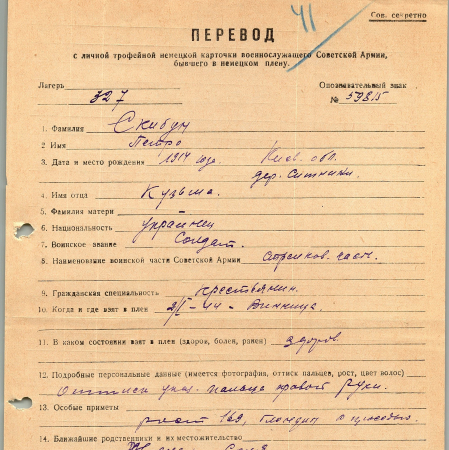 41
Сов. секретно
ПЕРЕВОД
с личной трофейной немецкой карточки военнослужащего Советской Армии,
бывшего в немецком плену.
Лагерь
Опознавательный знак
327
№ 59815
1. Фамилия Скибун
2 Имя Петро
3. Дата и место рождения 1914 года. Киев. обл.
дер. Ситники
4. Имя отца Кузьма.
5. Фамилия матери
6. Национальность украинец
7. Воинское звание Солдат.
8. Наименование воинской части Советской Армии стрелков. част.
9. Гражданская специальность крестьянин.
10. Когда и где взят в плен 2/I - 44 - Винница
11. В каком состоянии взят в плен (здоров, болен, ранен) здоров.
12. Подробные персональные данные (имеется фотография, оттиск пальцев, рост, цвет волос)
Оттиск указ. пальца правой руки.
13. Особые приметы
рост 169, блондин с
14. Ближайшие родственники и их местожительство